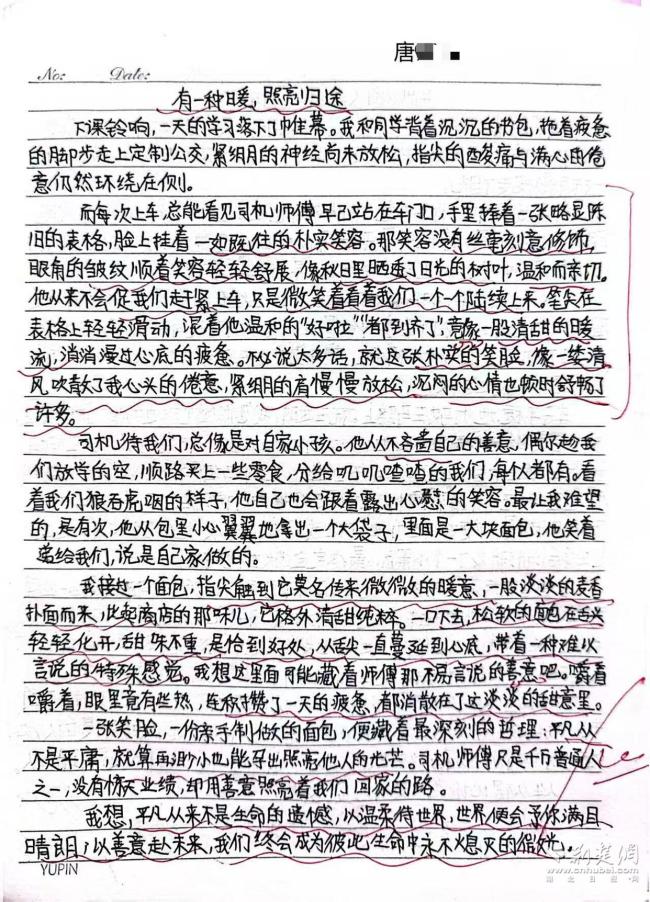 唐
No:   Date:
有一种暖，照亮归途
下课铃响，一天的学习落下了帷幕。我和同学背着沉沉的书包，拖着疲惫
的脚步走上定制公交，紧绷的神经尚未放松，指尖的酸痛与满心的倦
意仍然环绕在侧。
而每次上车，总能看见司机师傅早已站在车门口，手里捧着一张略显陈
旧的表格，脸上挂着一如既往的朴实笑容。那笑容没有丝毫刻意修饰，
眼角的皱纹顺着笑容轻轻舒展，像秋日里晒透了日光的树叶，温和而亲切。
他从来不会促我们赶紧上车，只是微笑着看着我们一个个陆续上来。笔尖在
表格上轻轻滑动，混着他温和的“好啦”“都到齐了”，竟像一股清甜的暖
流，消消漫过心底的疲惫。不必说太多话，就这张朴实的笑脸，像一缕清
风吹散了我心头的倦意，紧绷的肩慢慢放松，沉闷的心情也顿时舒畅了
许多。
司机待我们，总像是对自家小孩。他从不吝啬自己的善意，偶尔趁我
们放学的空，顺路买上一些零食，分给叽叽喳喳的我们，每人都有。看
着我们狼吞虎咽的样子，他自己也会跟着露出心慰的笑容。最让我难忘
的，是有次，他从包里小心翼翼地拿出一个大袋子，里面是一大块面包，他笑着
递给我们，说是自己家做的。
我接过一个面包，指尖触到它莫名传来微微的暖意，一股淡淡的麦香
扑面而来，比起商店的那味儿，它格外清甜纯粹。一口下去，松软的面包在舌尖
轻轻化开，甜味不重，是恰到好处，从舌尖一直蔓延到心底，带着一种难以
言说的特殊感觉。我想这里面可能藏着师傅那不易言说的善意吧。嚼着
嚼着，眼里竟有些热，连积攒了一天的疲惫，都消散在了这淡淡的甜意里。
一张笑脸，一份亲手制做的面包，便藏着最深刻的哲理：平凡从
不是平庸，就算再渺小也能孕出照亮他人的光芒。司机师傅只是千万普通人
之一，没有惊天业绩，却用善意照亮着我们回家的路。
我想，平凡从来不是生命的遗憾，以温柔待世界，世界便会予你满目
晴朗；以善意赴未来，我们终会成为彼此生命中永不熄灭的微光。
YUPIN
荆楚网
www.cnhubei.com
湖北日报网